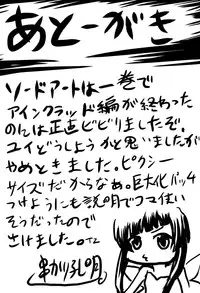 あとーがき
ソードアートは一巻で
アインクラッド編が終わった
のんは正直ビビりましたぞ。
ユイどうしようかと思いましたが
やめときました。ピクシー
サイズだからなぁ。巨大化パッチ
つけようにも説明でコマ使い
そうだったので
さけました。
串かりんろ明